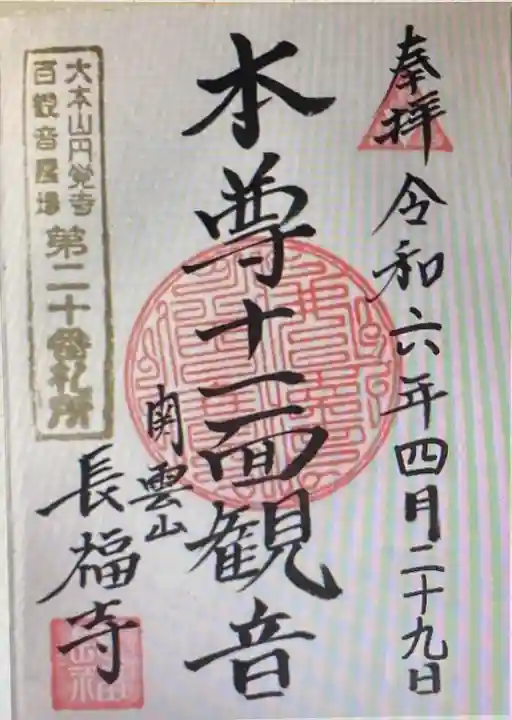 奉拝 令和六年四月二十九日
本尊十一面観音
南雲山
長福寺
大本山円覚寺
百観音霊場 第二十番札所